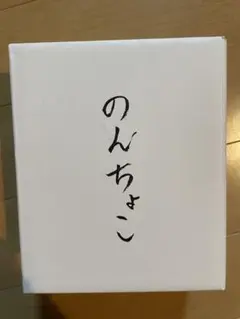 のんちょこ